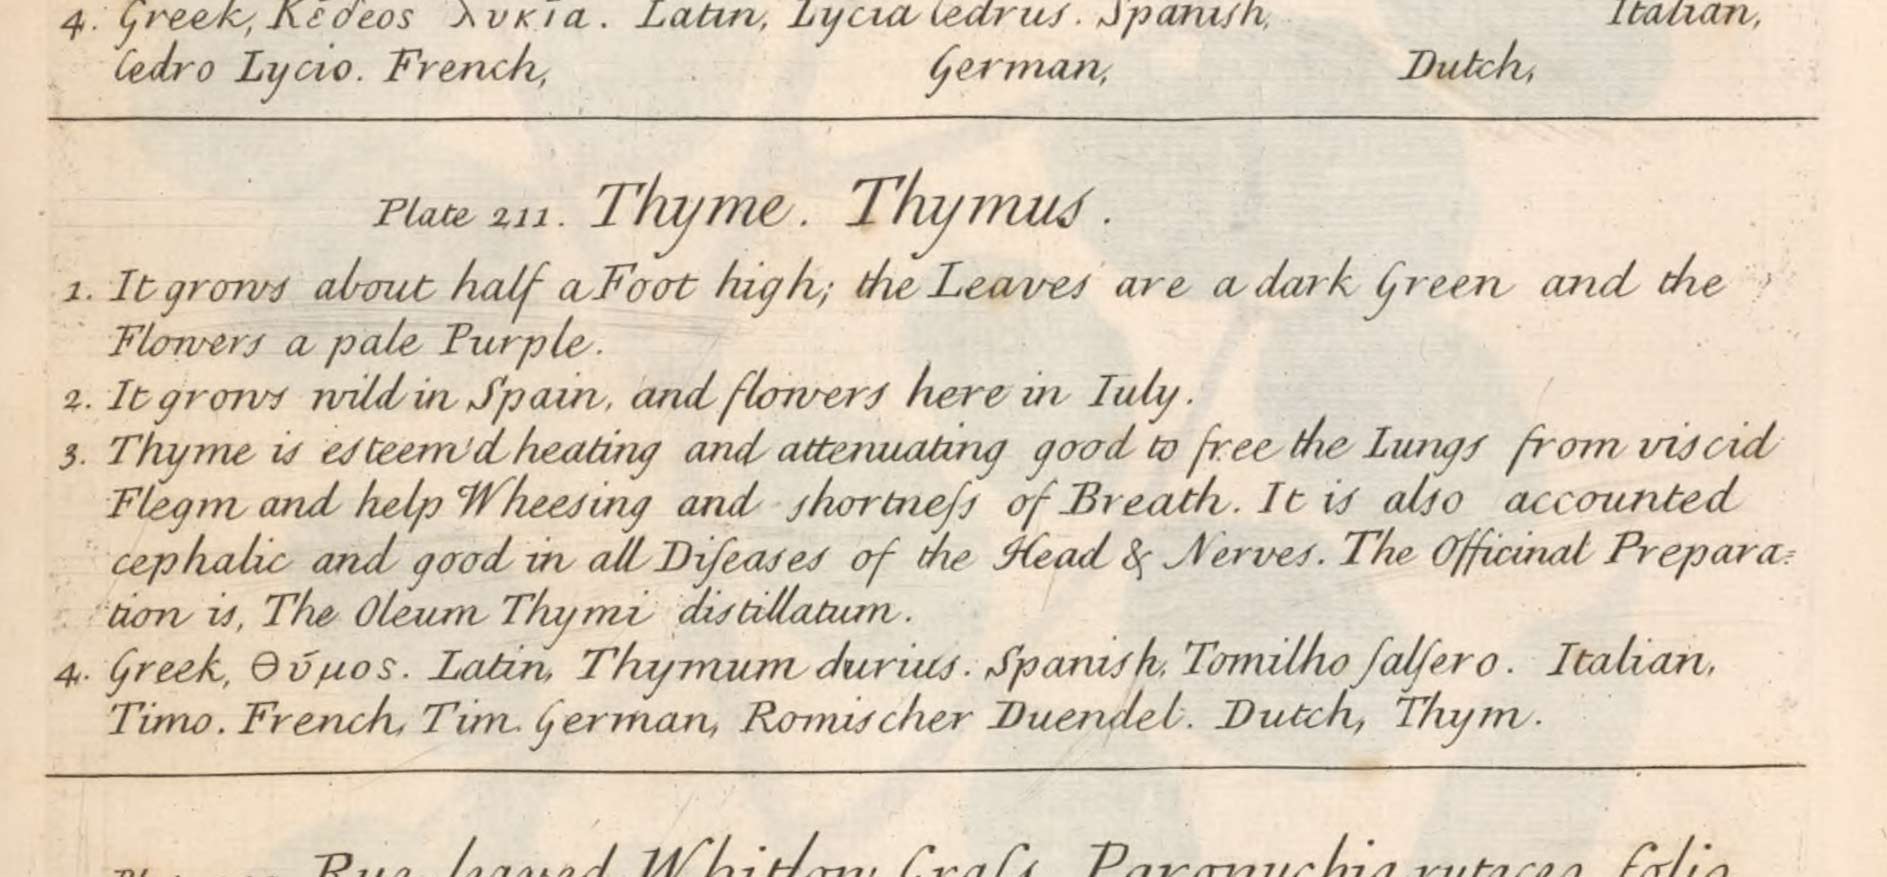 4. Greek, Κέδεος λυκία. Latin, Lycia Cedrus. Spanish, Italian,
Cedro Lycio. French, German, Dutch,
Plate 211. Thyme. Thymus.
1. It grows about half a Foot high; the Leaves are a dark Green and the
Flowers a pale Purple.
2. It grows wild in Spain, and flowers here in Iuly.
3. Thyme is esteem'd heating and attenuating good to free the Lungs from viscid
Flegm and help Wheesing and shortneſs of Breath. It is also accounted
cephalic and good in all Diſeases of the Head & Nerves. The Officinal Prepara=
tion is, The Oleum Thymi distillatum.
4. Greek, Θύμος. Latin, Thymum durius. Spanish, Tomilho ſalſero. Italian,
Timo. French, Tim. German, Romischer Duendel. Dutch, Thym.
Rue leaved Whitlow Graſs. Paronychia rutaceo folio